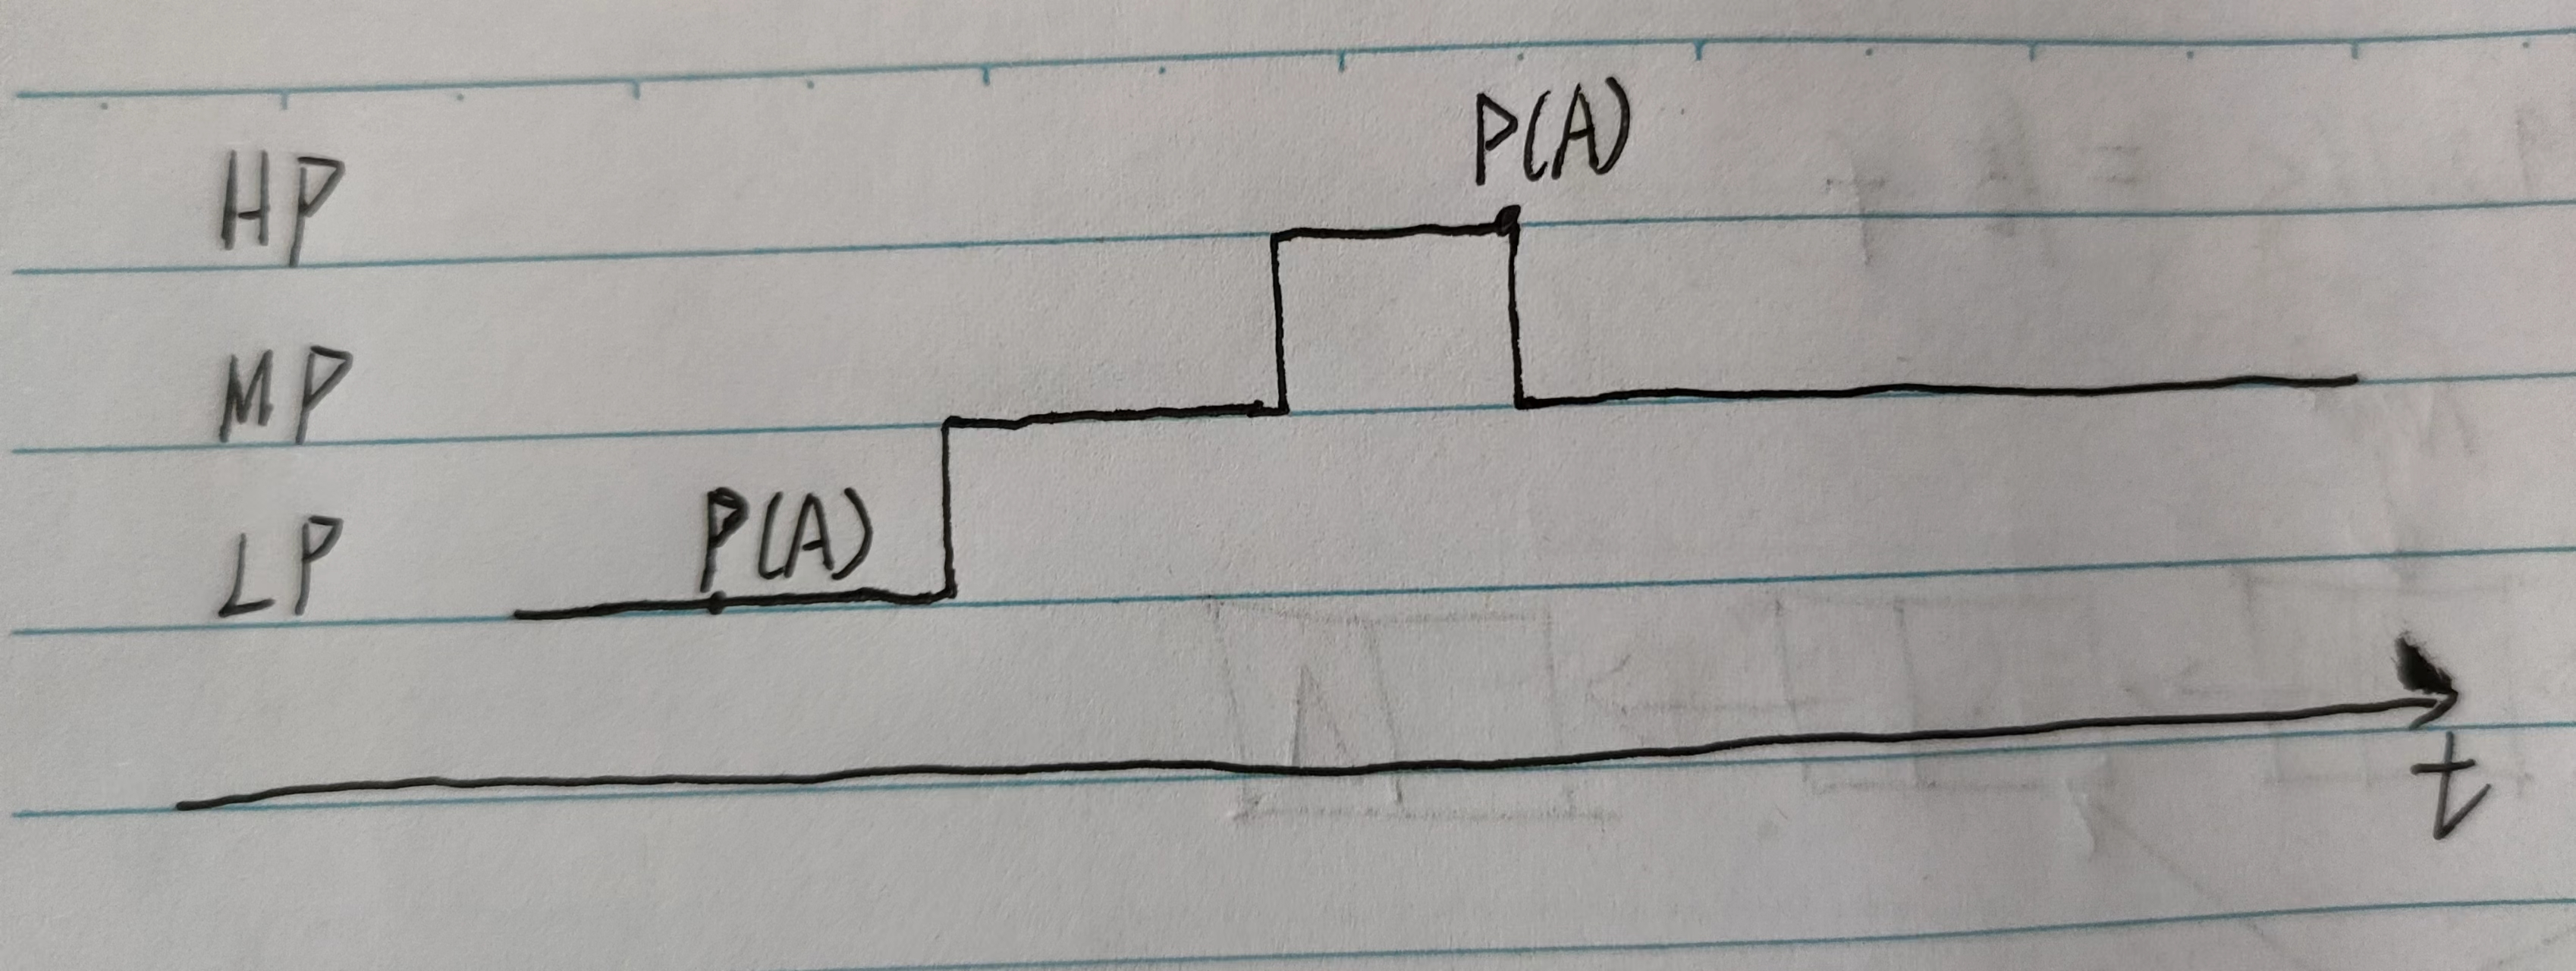 P(A)
HP
MP
P(A)
LP
t